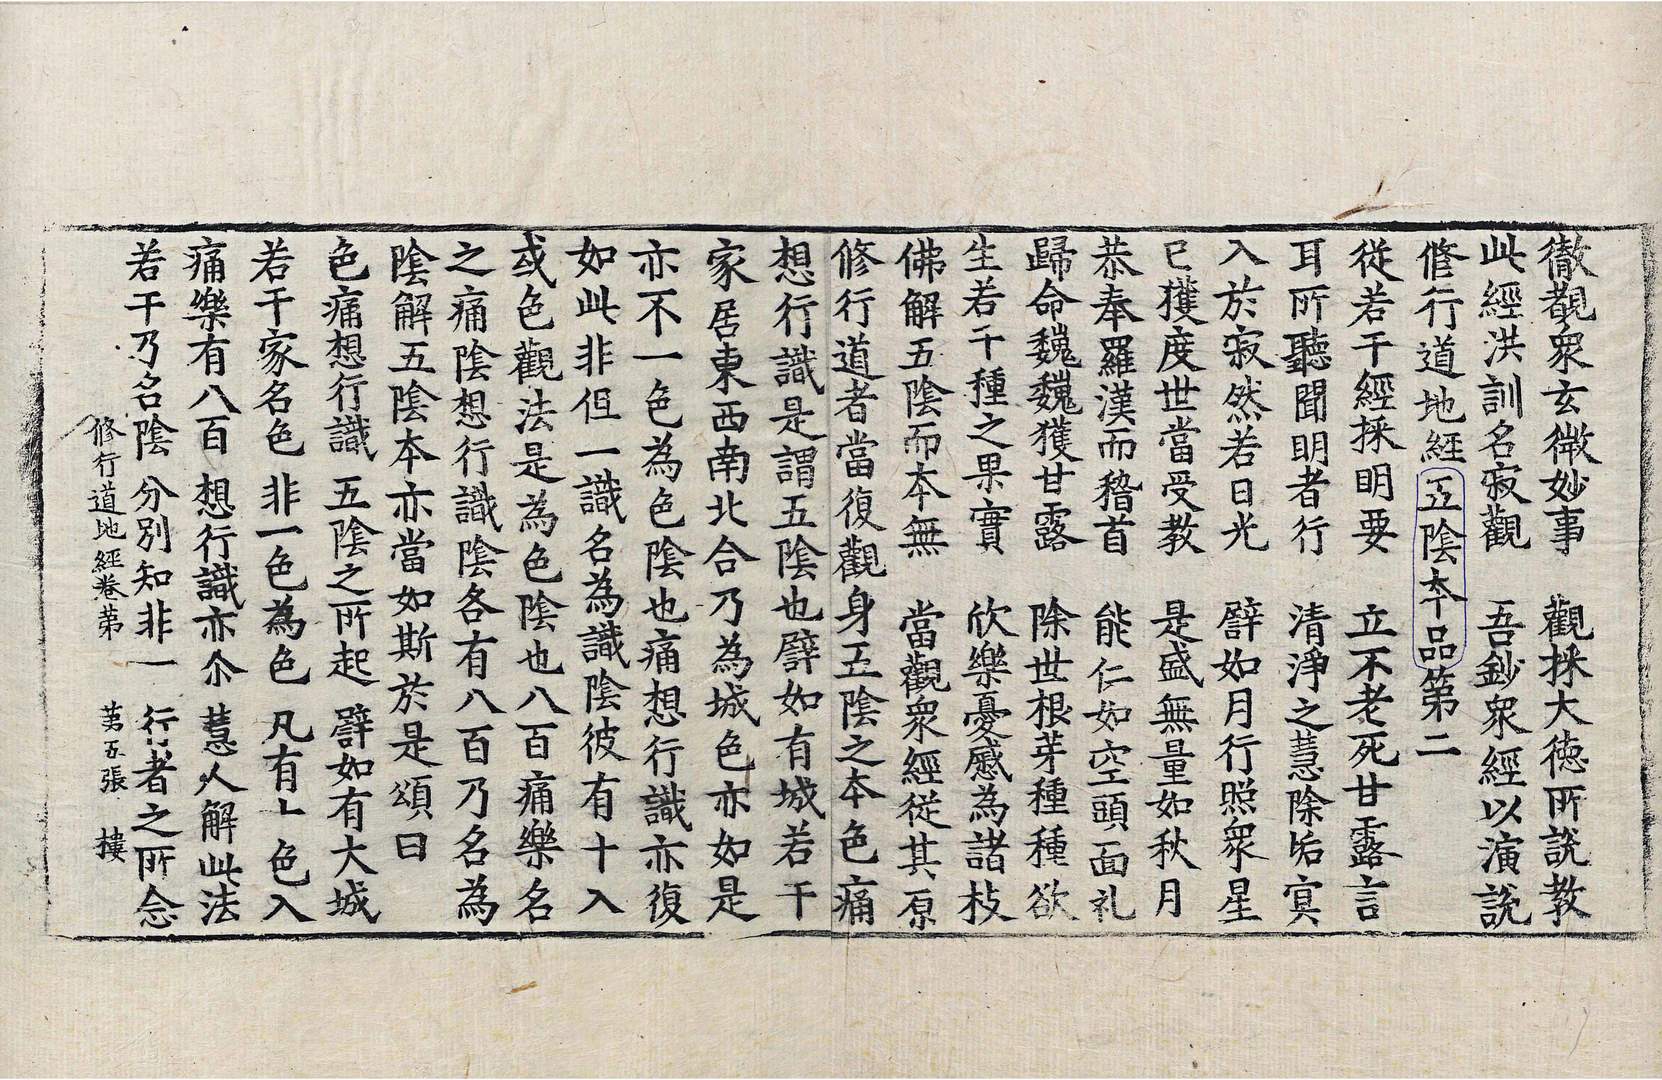 徹覩衆玄微妙事　觀採大徳所說教
此經洪訓名寂觀　吾鈔衆經以演說
修行道地經五陰本品第二
從若干經採明要　立不老死甘露言
耳所聽聞明者行　清淨之慧除垢冥
入於寂然若日光　譬如月行照衆星
已獲度世當受教　是盛無量如秋月
恭奉羅漢而稽首　能仁如空頭面礼
歸命巍巍獲甘露　除世根芽種種欲
生若干種之果實　欣樂憂慼為諸枝
佛解五陰而本無　當觀衆經從其原
修行道者當復觀身五陰之本色痛
想行識是謂五陰也譬如有城若干
家居東西南北合乃為城色亦如是
亦不一色為色陰也痛想行識亦復
如此非但一識名為識陰彼有十入
或色觀法是為色陰也八百痛樂名
之痛陰想行識陰各有八百乃名為
陰解五陰本亦當如斯於是頌曰
色痛想行識　五陰之所起　譬如有大城
若干家名色　非一色為色　凡有色入
痛樂有八百　想行識亦尒　慧人解此法
若干乃名陰　分別知非一　行者之所念
修行道地經卷苐　苐五張　樓